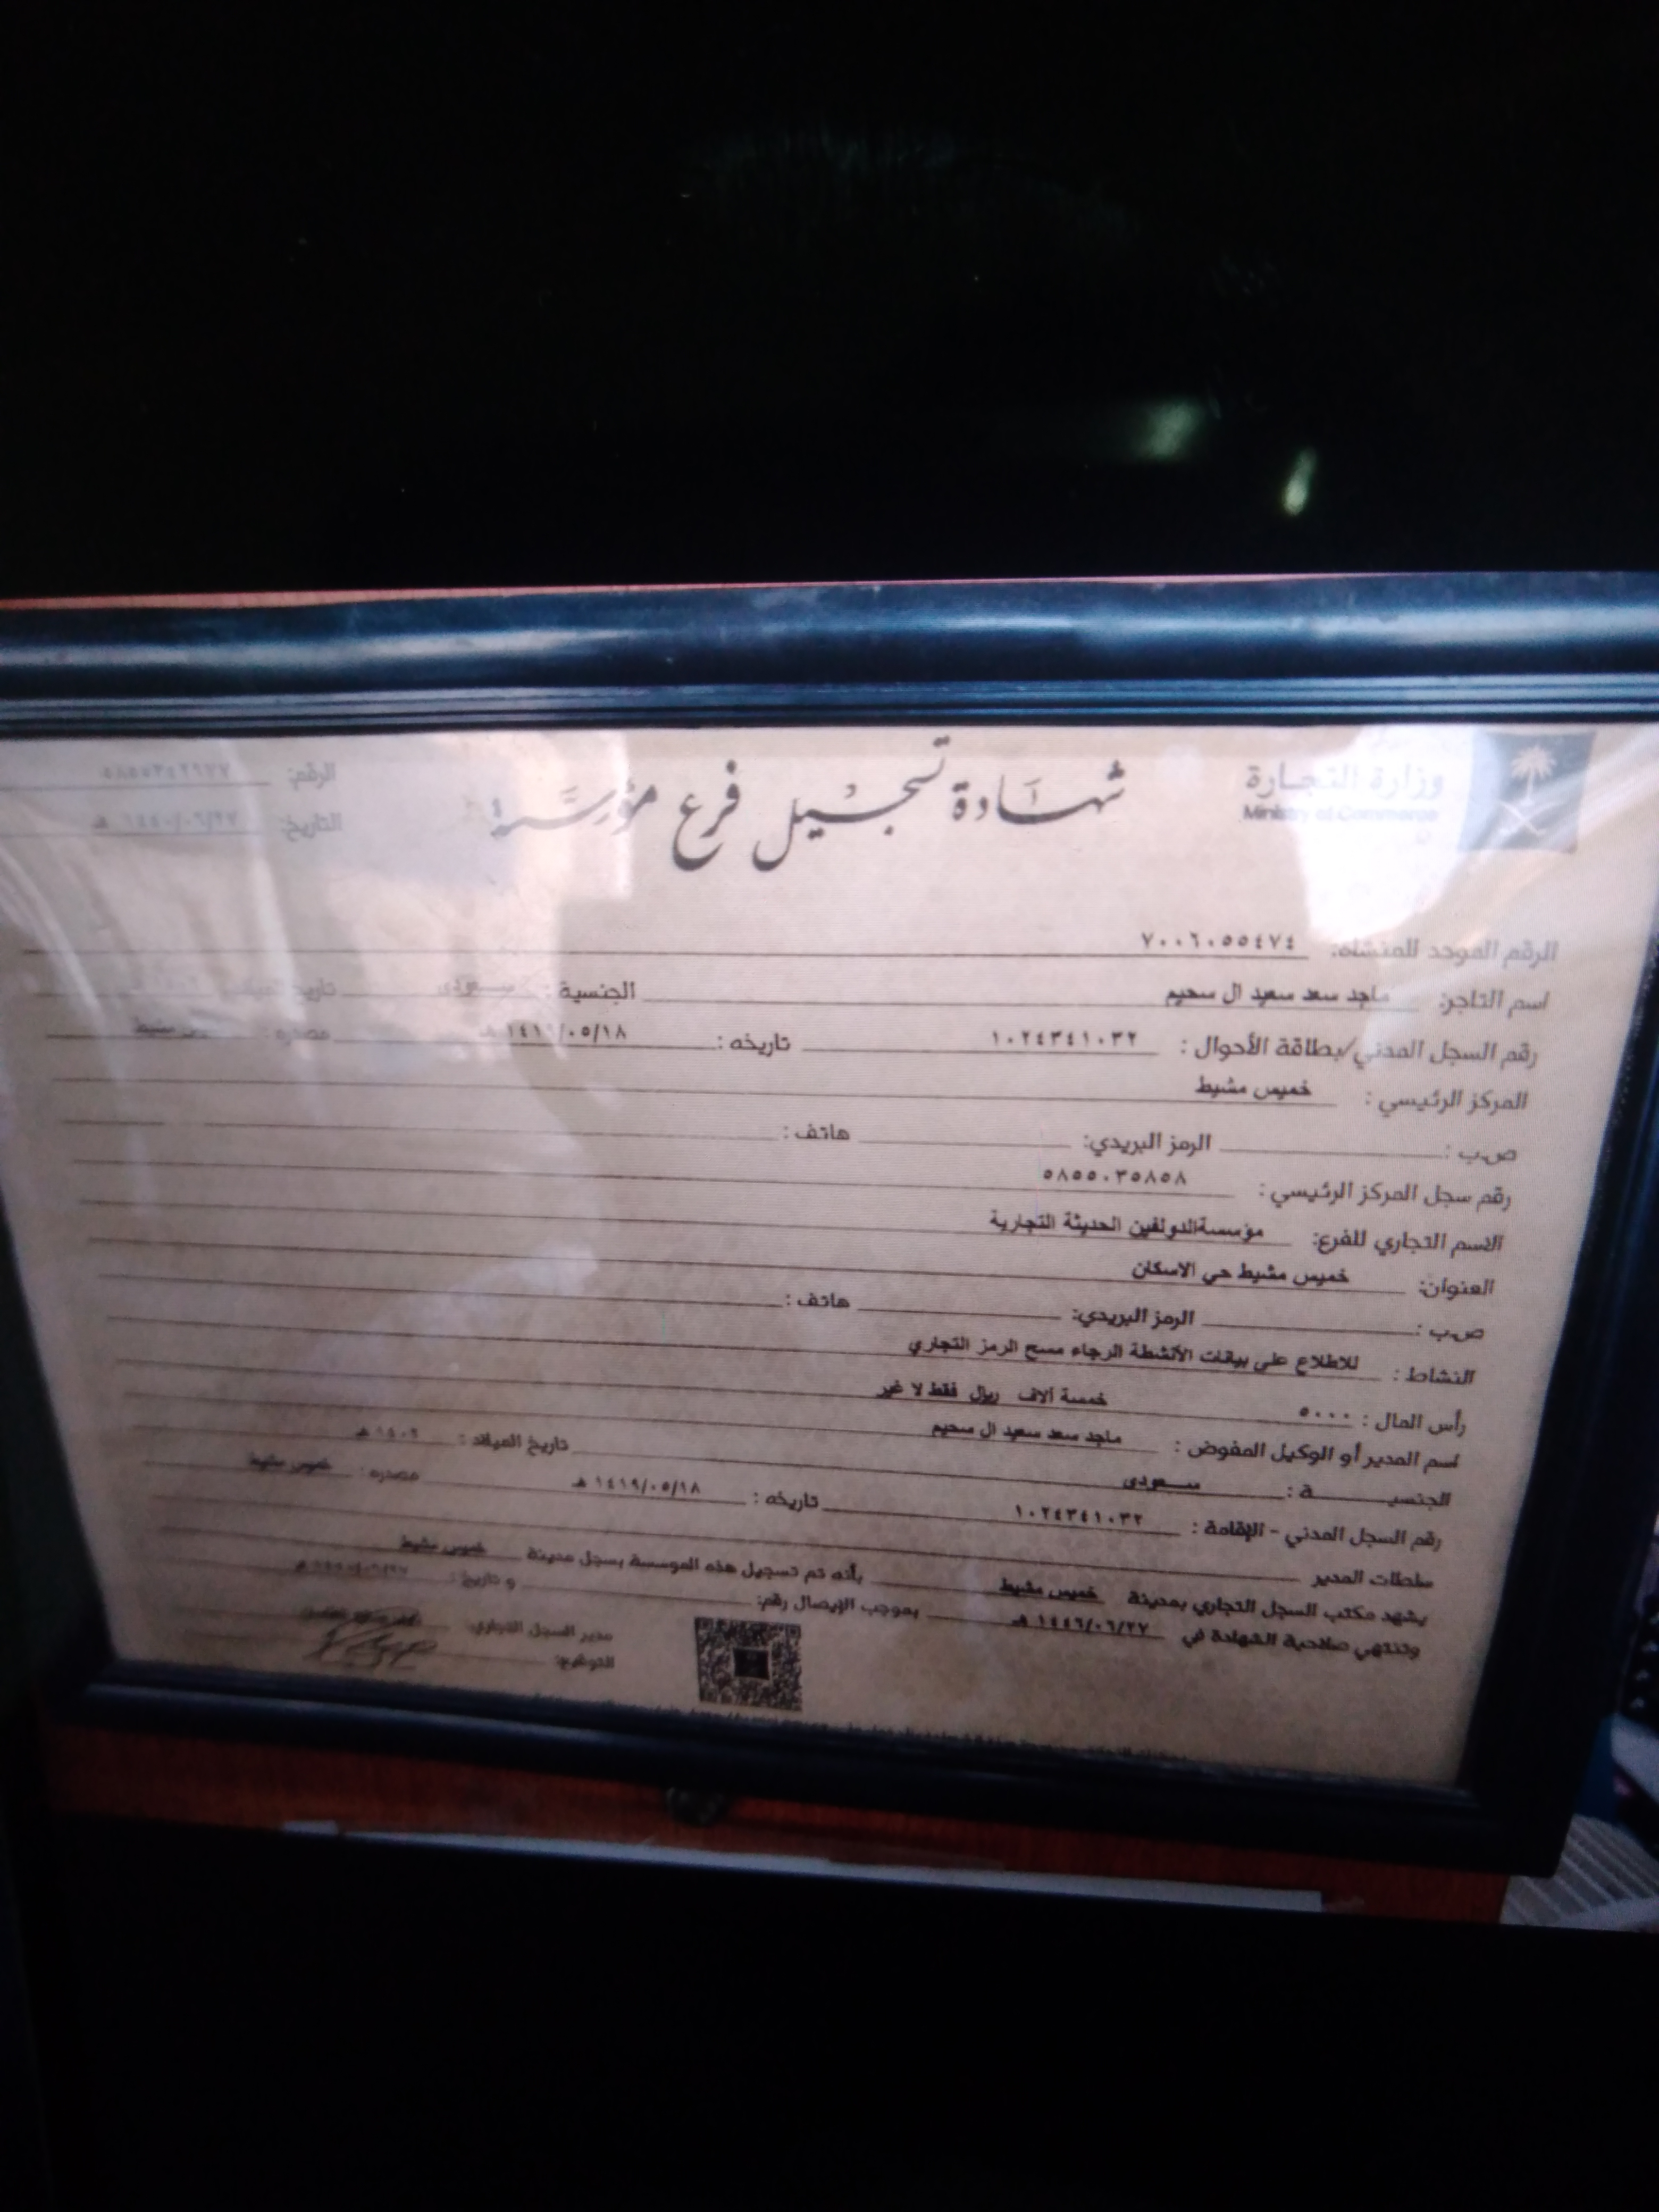 وزارة التجارة
Ministry of Commerce
شهادة تسجيل فرع مؤسسة
الرقم:
التاريخ:
الرقم الموحد للمنشأة: ٧٠٠٦٠٥٥٤٧٤
اسم التاجر: ماجد سعد سعيد ال سحيم الجنسية : سعودى تاريخ الميلاد
رقم السجل المدني/بطاقة الأحوال : ١٠٢٤٣٤١٠٣٢ تاريخه : ١٤١٩/٠٥/١٨ هـ مصدره : خميس مشيط
المركز الرئيسي : خميس مشيط
ص.ب : الرمز البريدي: هاتف :
رقم سجل المركز الرئيسي : ٥٨٥٥٠٣٥٨٥٨
الاسم التجاري للفرع: مؤسسةالدولفين الحديثة التجارية
العنوان: خميس مشيط حي الاسكان
ص.ب : الرمز البريدي: هاتف :
النشاط : للاطلاع على بيانات الأنشطة الرجاء مسح الرمز التجاري
رأس المال : ٥٠٠٠ خمسة آلاف ريال فقط لا غير
اسم المدير أو الوكيل المفوض : ماجد سعد سعيد ال سحيم
الجنسيـــة : سعودى تاريخ الميلاد : هـ
رقم السجل المدني - الإقامة : ١٠٢٤٣٤١٠٣٢ تاريخه : ١٤١٩/٠٥/١٨ هـ مصدره : خميس مشيط
سلطات المدير
يشهد مكتب السجل التجاري بمدينة خميس مشيط بأنه تم تسجيل هذه المؤسسة بسجل مدينة خميس مشيط
وتنتهي صلاحية الشهادة في ١٤٤٦/٠٦/٢٧ هـ بموجب الإيصال رقم: و تاريخ :
مدير السجل التجاري:
التوقيع: